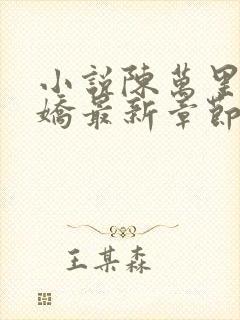 小說陳萬里
嬌最新章節
王某森